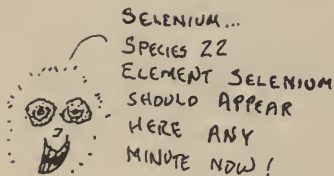 SELENIUM...
SPECIES 22
ELEMENT SELENIUM
SHOULD APPEAR
HERE ANY
MINUTE NOW!